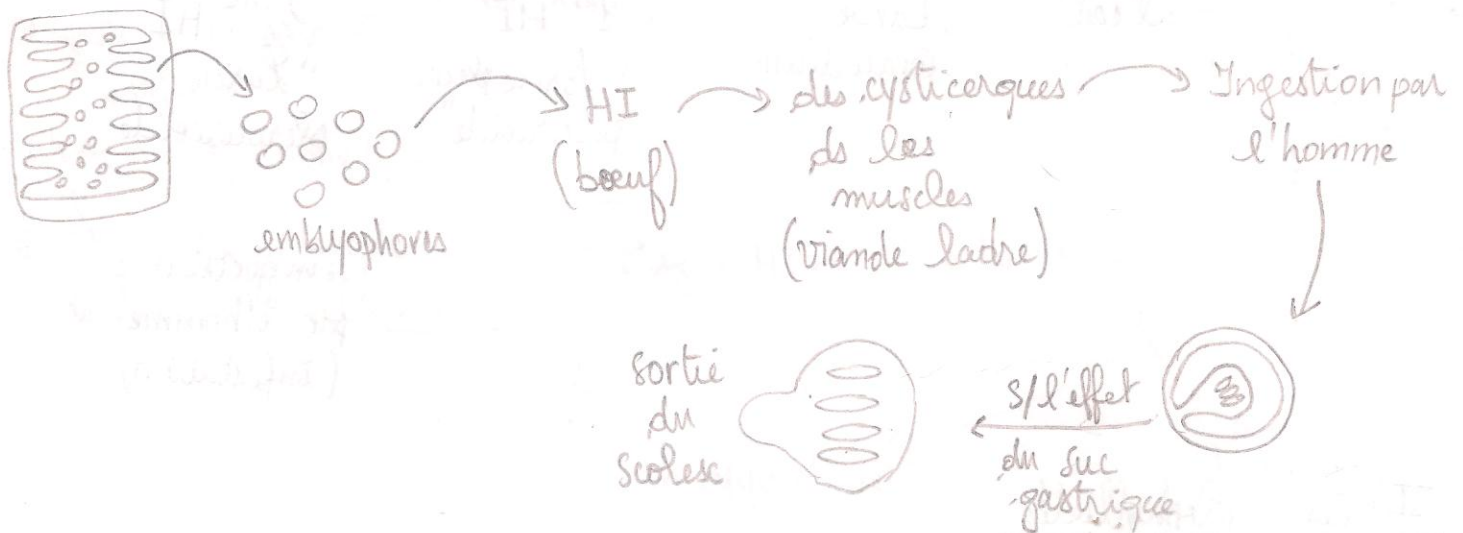 embryophores
HI
(bœuf)
des cysticerques
ds les
muscles
(viande ladre)
Ingestion par
l'homme
s/l'effet
du suc
gastrique
sortie
du
scolex